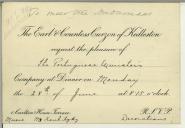 To meet the
The Earl & Countess Curzon of Kedleston
request the pleasure of
the Portuguese Minister's
Company at Dinner on Monday
the 28th of June at 8.15 o'clock.
Carlton House Terrace R.S.V.P.
Decorations